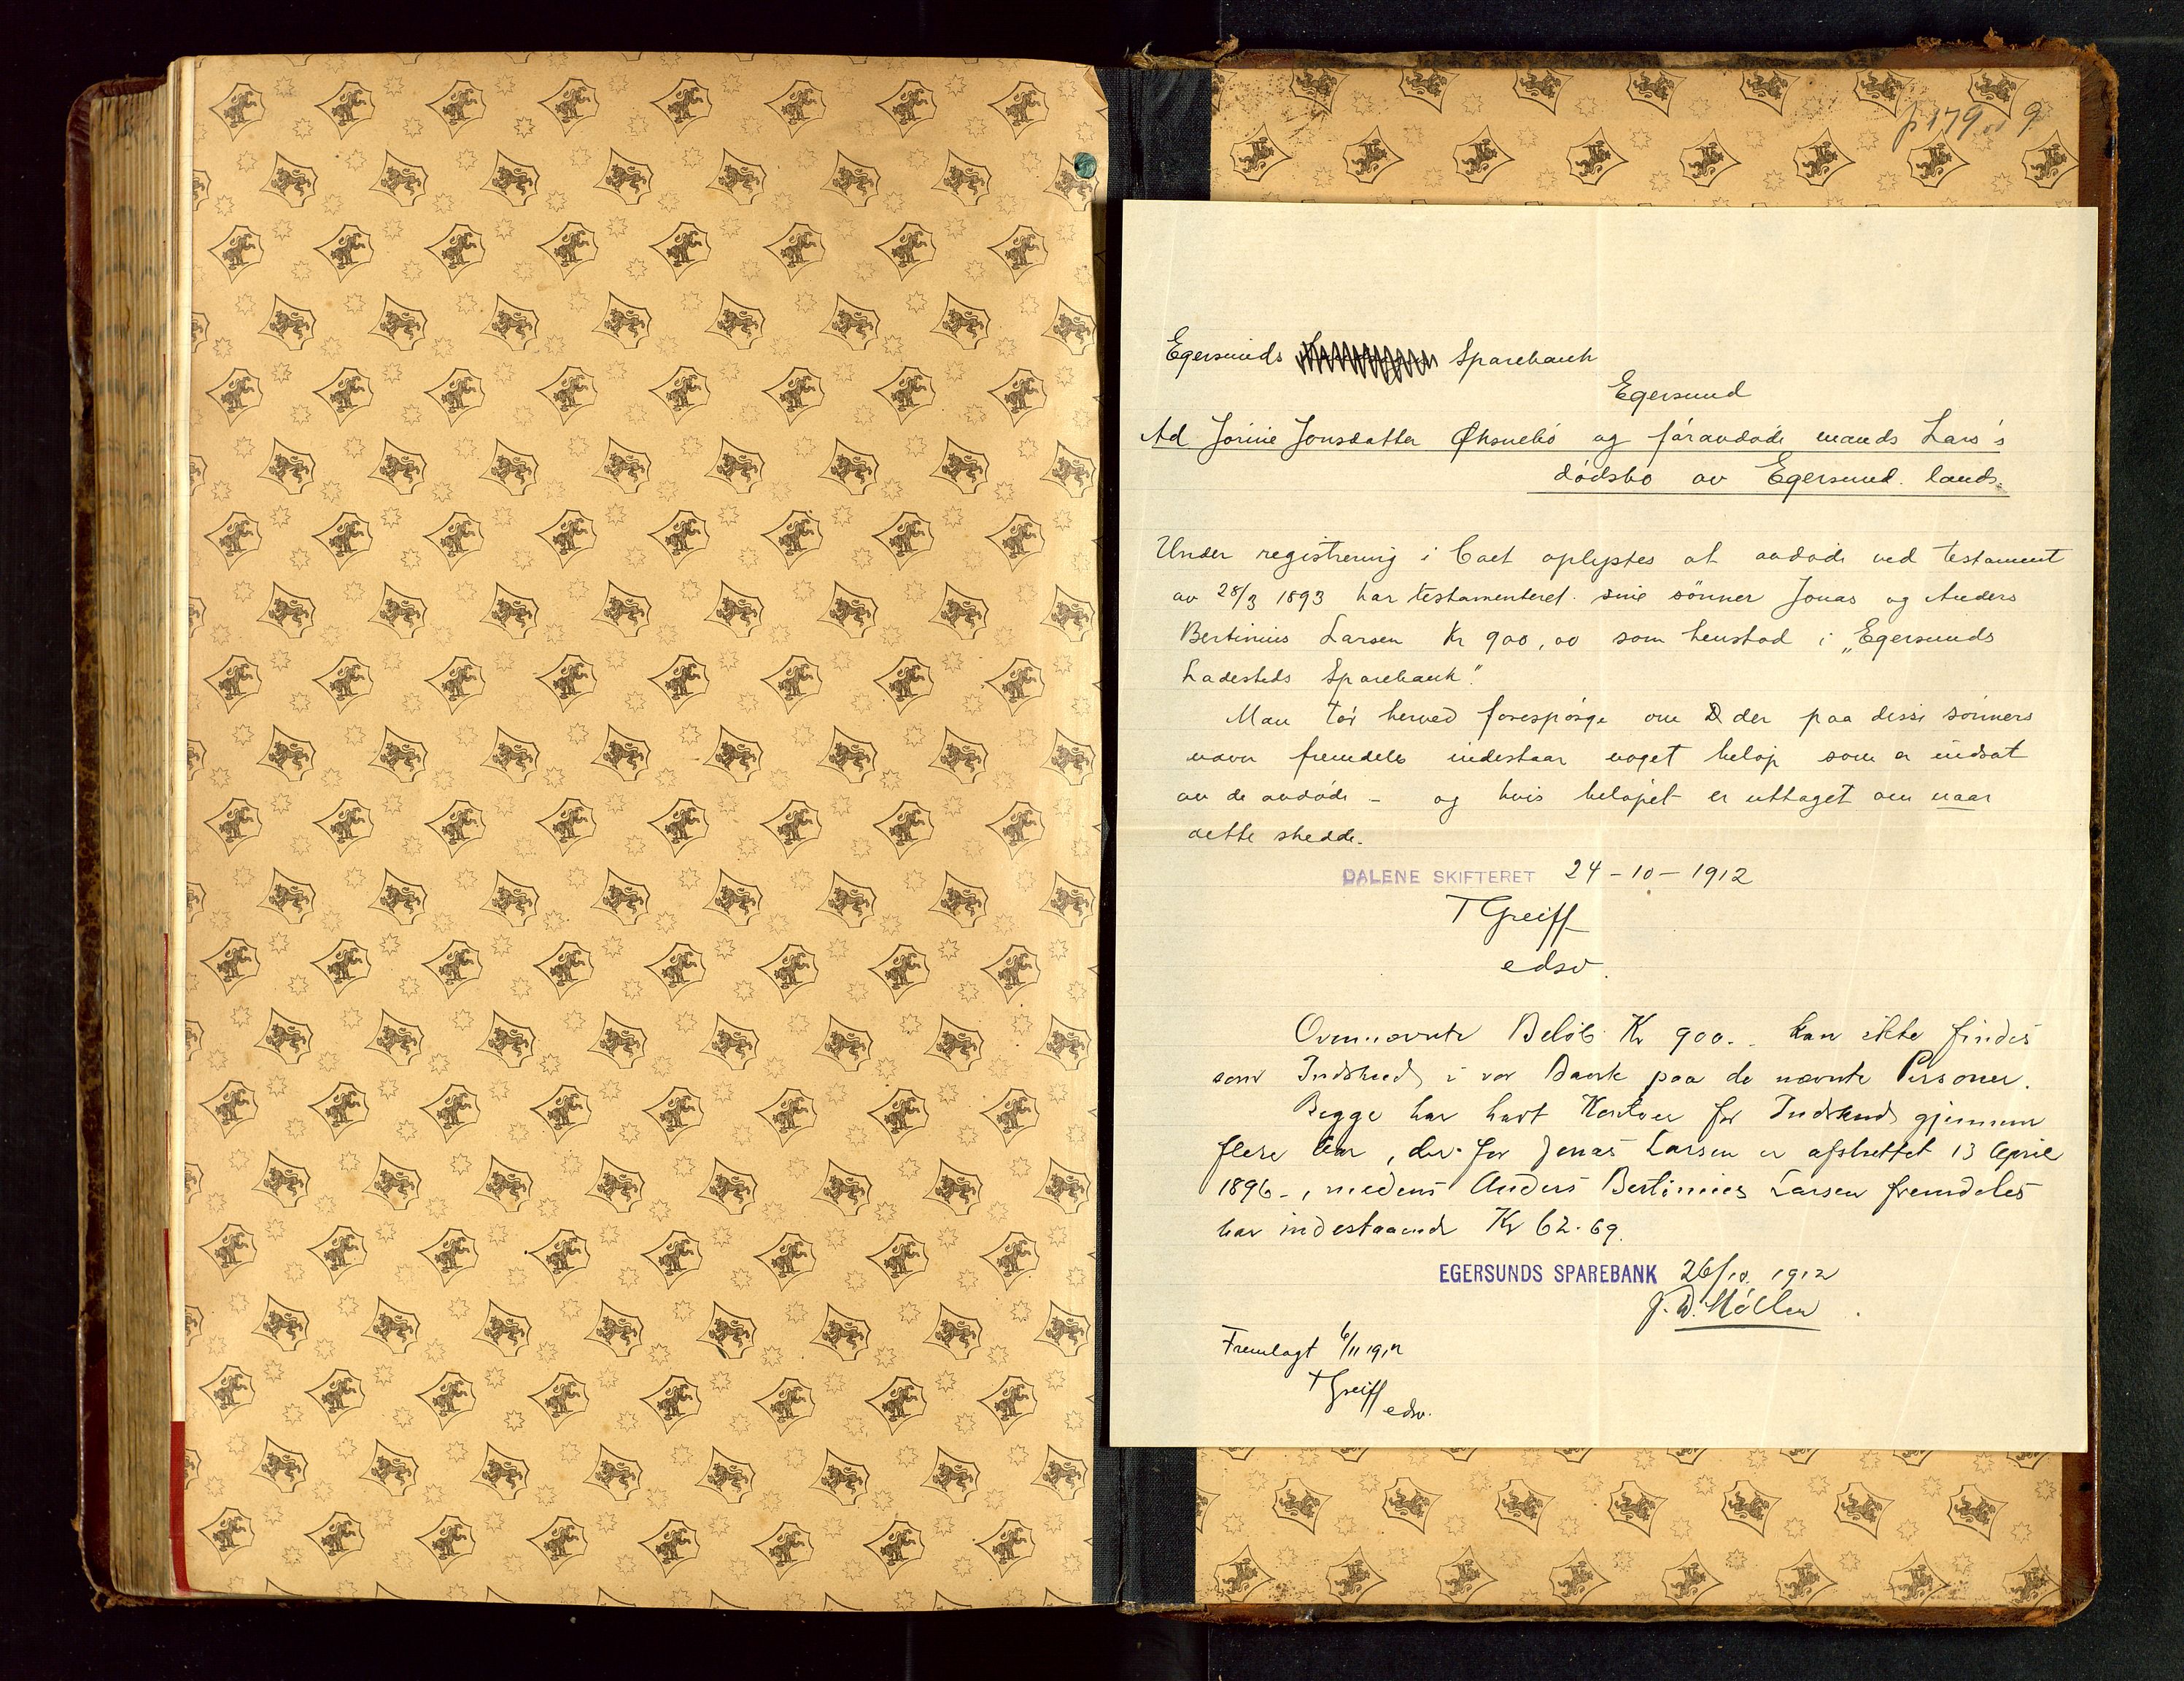 p 179 9
Egersunds Sparebank
Egersund
Ad Jorine Jonsdatter Øksnebö og föravdöde mands Lars's
dödsbo av Egersund. lands.
Under registrering i boet oplystes at avdöde ved testament
av 28/3 1893 har testamenteret sine sönner Jonas og Anders
Bertinius Larsen Kr 900,00 som henstod i „Egersunds
Ladesteds Sparebank".
Man tör herved forespörge om der paa disse sönners
navn fremdeles indestaar noget belöp som er indsat
av de avdöde - og hvis belöpet er uttaget om naar
dette skedde.
DALENE SKIFTERET 24-10-1912
T Greiff
edsv.
Ovennævnte Belöb Kr 900.- kan ikke findes
som Indskud i vor Bank paa de nævnte Personer.
Begge har havt Kontoer for Indskud gjennem
flere Aar, der for Jonas Larsen er afsluttet 13 April
1896-, medens Anders Bertinius Larsen fremdeles
har indestaaende Kr 62.69.
EGERSUNDS SPAREBANK 26/10. 1912
Fremlagt 6/11 1912
T Greiff
edsv.